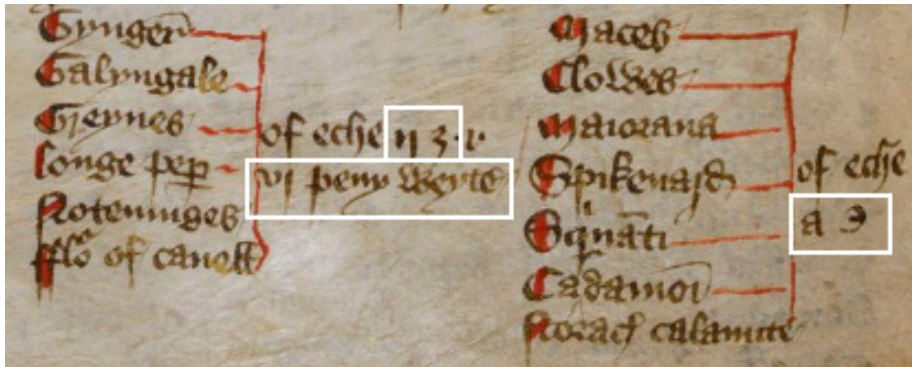 Gynger
Galyngale
Greynes
longe pep
Notemuges
fflo of canell
of eche ij ʒ. v.
vj peny weyte
Maces
Clowes
Maiorana
Spikenard
Squinanti
Cadamoi
Storacħ calamite
of eche
a ℈